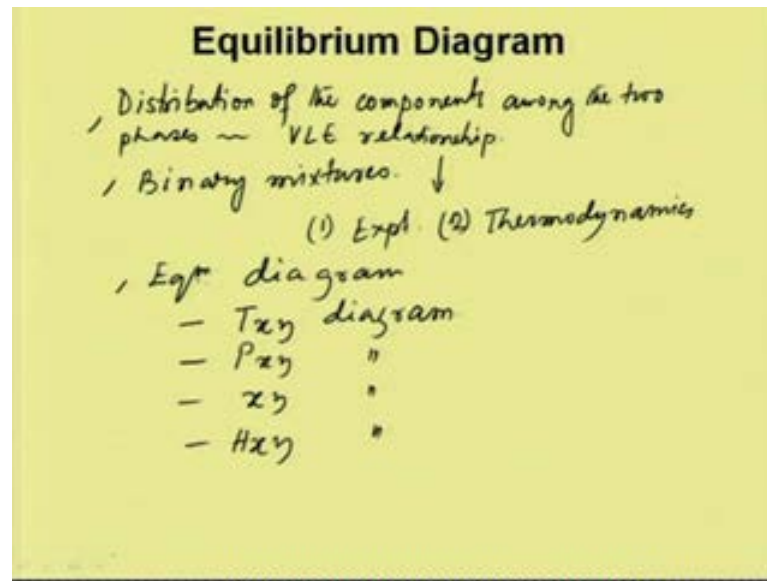 Equilibrium Diagram
, Distribution of the components among the two
phases ~ VLE relationship.
, Binary mixtures. ↓
(1) Expt. (2) Thermodynamics
, Eqm diagram
- Txy diagram
- Pxy "
- xy "
- Hxy "